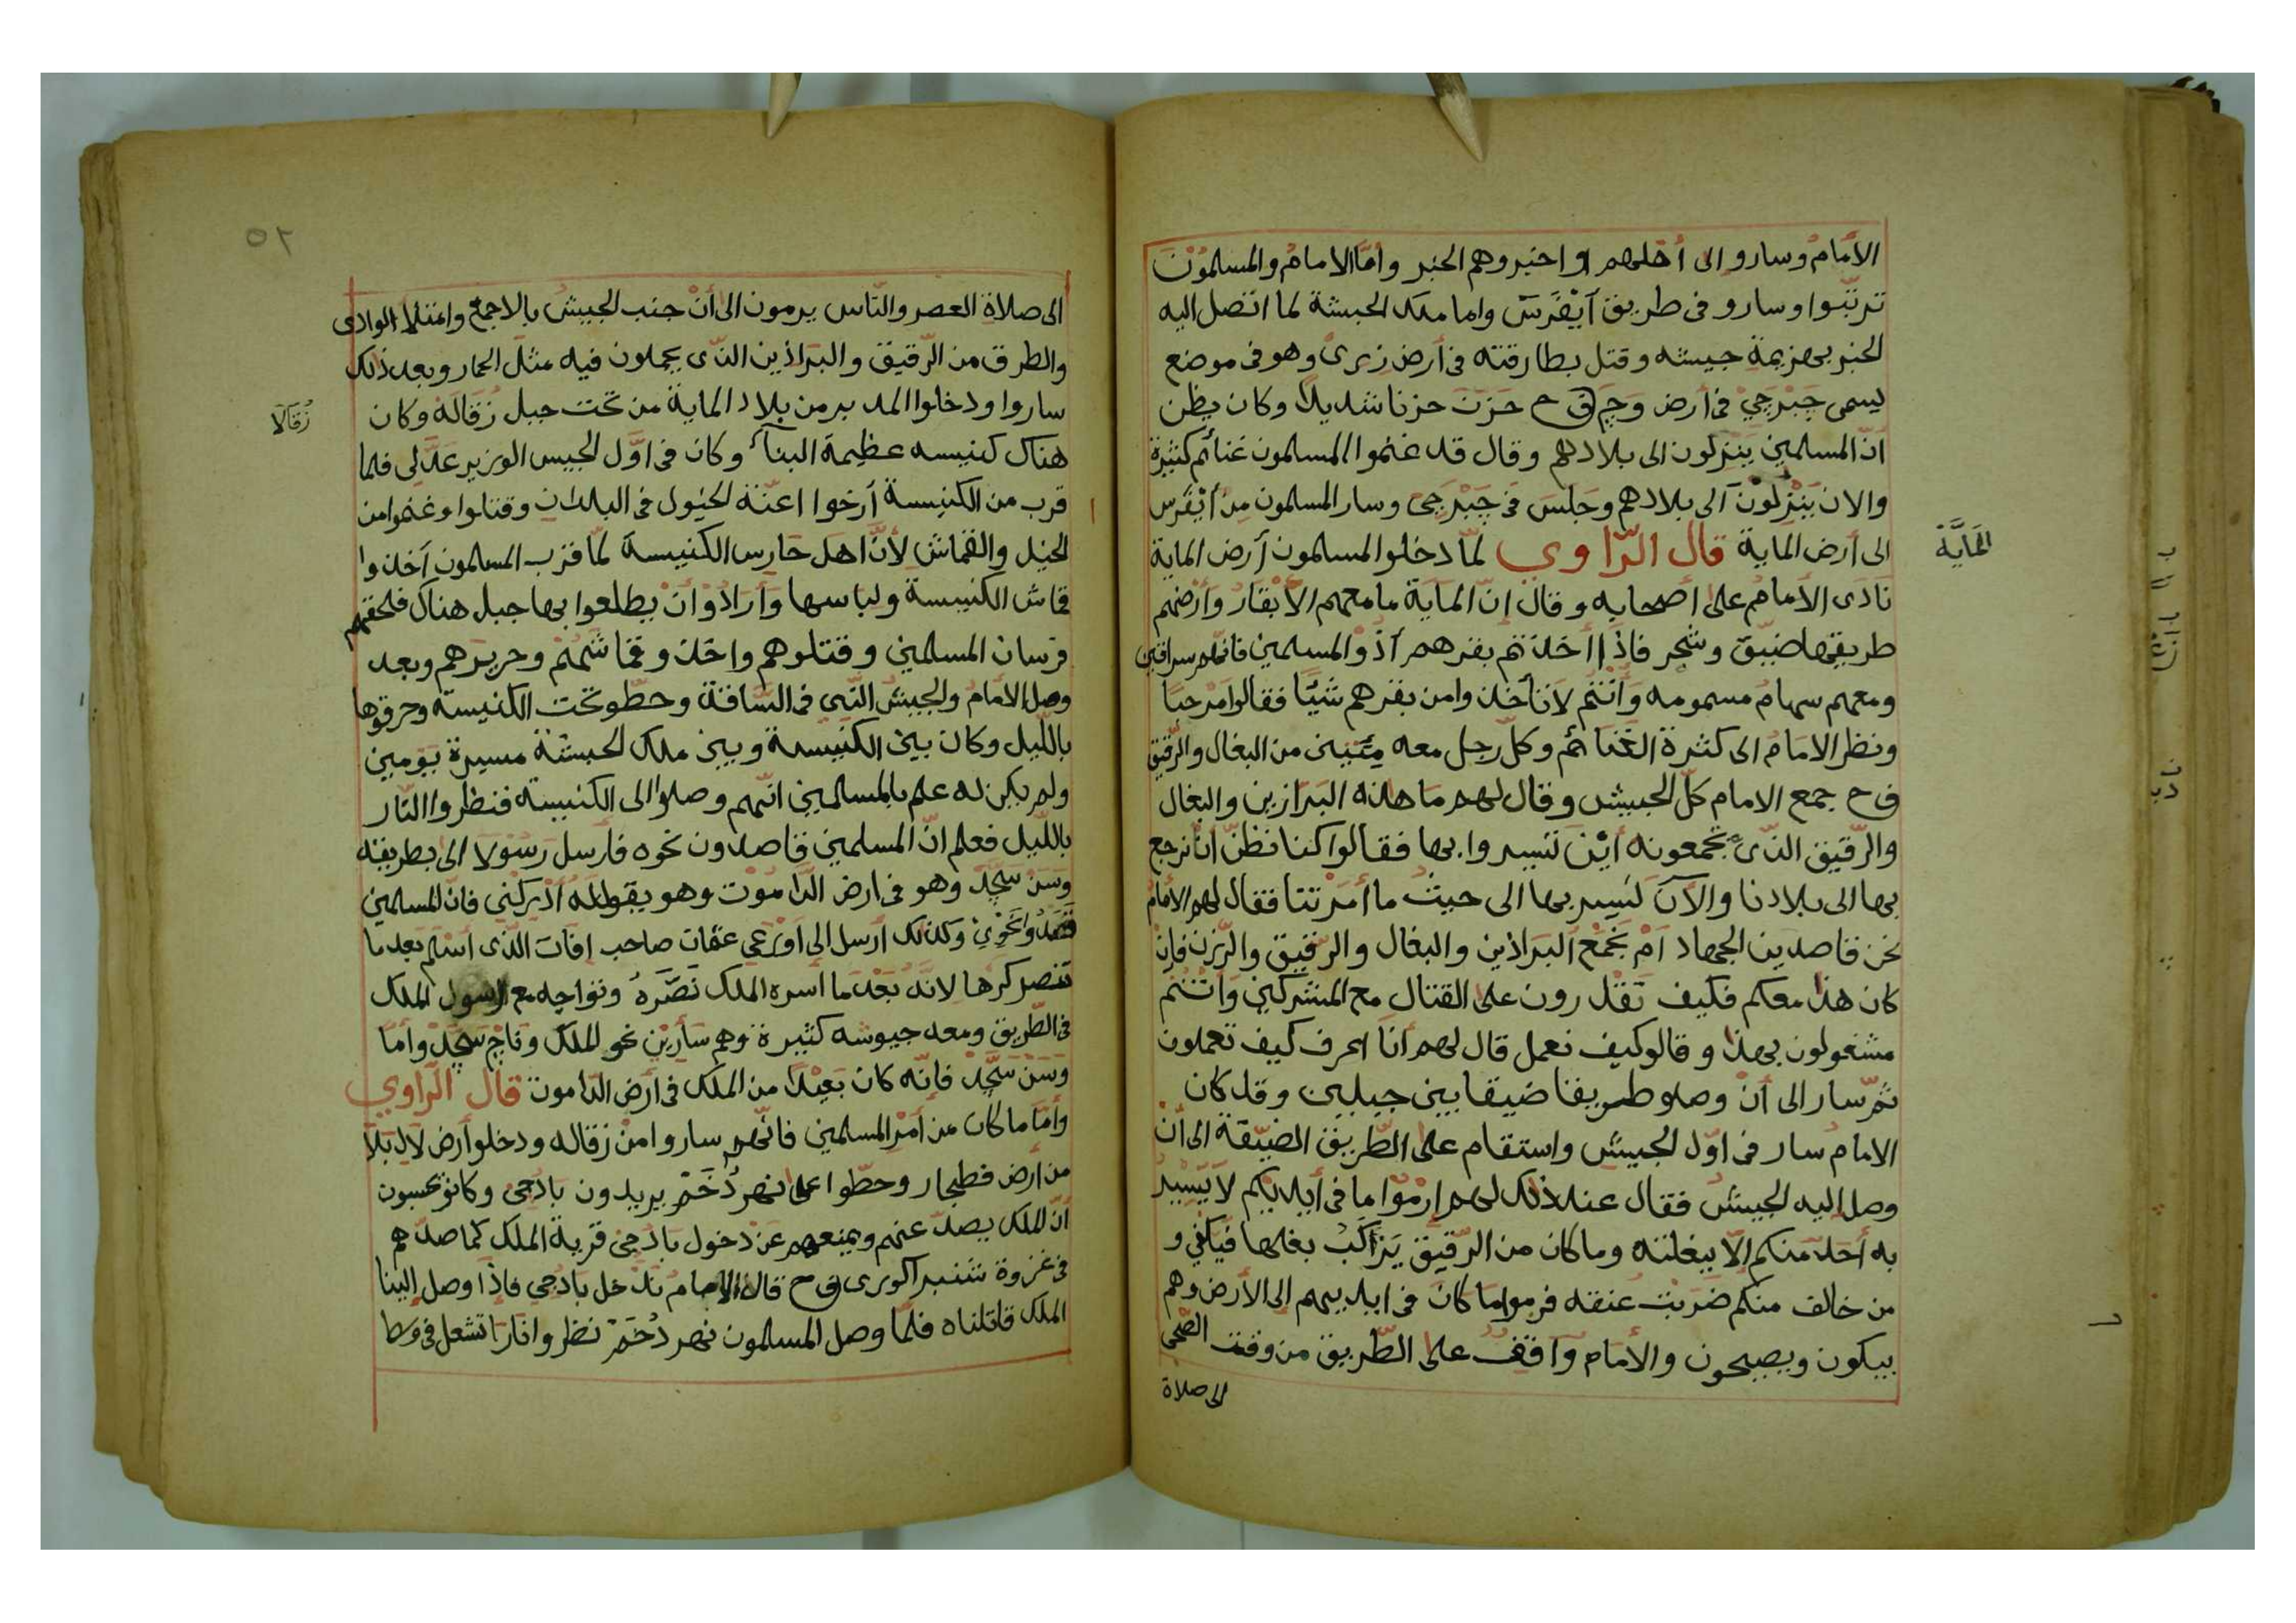 الأمام وسارو الى أخلهم واخبروهم الخبر وأمّا الامام والمسلمون
ترتّبوا وسارو فى طريق أيْفَرس واما ملك الحبشة لما اتصل اليه
الخبر بهزيمة جيشه وقتل بطارقته فى أرض زرى وهو فى موضع
يسمى جَبْرجىْ فى أرض وَجٍ ق ح حَزَنَ حزنا شديلا وكان يظن
انّ المسلمين يَنْزلون الى بلادهم وقال قد غنموا المسلمون غنائم كثيرة
والان يَنْزلُونَ الى بلادهم وجلسَ فى جَبْرجى وسار المسلمون من أيْفَرس
الى أرض الماية قال الرّاوي لمّا دخلوا المسلمون أرض الماية
نَادَى الأمام على أصحابه وقال انّ المَايَة ما معهم الاّ بْقار وأرضهم
طريقها ضيّق وشجر فاذا أخذتم بقرهم آذوْا المسلمين فانهم سراقين
ومعهم سهام مسمومه وأنتم لا تأخذوا من بقرهم شيًا فقالوا مرحبًا
ونظر الامام الى كثرة الغنائم وكلّ رجل معه مِتَينى من البغال والرّقيق
ق ح جمع الامام كلّ الجيش وقال لهم ما هذه البرازين والبغال
والرّقيق الّذى تجمعونه أيْنَ تسيروا بها فقالوا كنا نظنّ ان نرجع
بها الى بلادنا والآن نسير بها الى حيث ما أمرْتنا فقال لهم الأمام
نحن قاصدين الجهاد أمْ نجمع البراذين والبغال والرقيق والرّزن فان
كان هذا معكم فكيف تقدرون على القتال مع المشركين وأنتم
مشغولون بهذا وقالو كيف نعمل قال لهم أنا اعرف كيف تعملون
ثمّ سار الى أنْ وصلو طريقا ضيقا بين جبلين وقد كان
الامام سار فى اوّل الجيش واستقام على الطّريق الضيّقة الى أنْ
وصل اليه الجيش فقال عند ذلك لهم ارْموْا ما فى أيديكم لا يَسيْر
به أحد منكم الاّ ببغلته وما كان من الرّقيق يَركَبُ بغلها فيكفي و
من خالف منكم ضربْت عنقه فرموا ما كان فى ايديهم الى الأرض وهم
يبكون ويصيحون والأمام واقف على الطّريق من وقت الضّحى
الى صلاة
المَايَّة
٥٢
الى صلاة العصر والنّاس يرمون الى أنْ جنب الجيش بالاجمع وامتلا الوادى
والطرق من الرّقيق والبراذين الّذى يحملون فيه مثل الحمار وبعد ذلك
ساروا ودخلوا المدبر من بلاد الماية من تحت جبل زقَالَة وكان
هناك كنيسه عظيمة البناء وكان فى اوّل الجيس الوزير عدّلى فلما
قرب من الكنيسة أرخوا اعنّة الخيول فى البلدان وقتلوا وغنموا من
الخيل والقماش لأنّ اهل حَارس الكنيسة لمّا قرب المسلمون أخذوا
قماش الكنيسة ولباسها وأرادوْا انْ يطلعوا بها جبل هناك فلحقهم
فرسان المسلمين وقتلوهم واخذو قماشهم وحريرهم وبعد
وصل الأمام والجيش الّتى فى السّاقة وحطّو تحت الكنيسة وحرقوها
باللّيل وكان بين الكنيسة وبين ملك الحبشة مسيرة يومين
ولم يكن له علم بالمسلمين انّهم وصلوا الى الكنيسة فنظروا النّار
باللّيل فعلم انّ المسلمين قاصدون نحوه فأرسل رسولا الى بطريقه
وَسَنْ سَجَّد وهو فى ارض الدّاموت وهو يقول له أدْركْنى فانّ المسلمين
قصدُوا نحوى وكذلك أرسل الى أوْرَعى عثمان صاحب إفات الّذى أسلم بعد ما
تنصر كرها لانّه بَعْدَ ما أسره الملك نصّرهُ وتواجه مع الرسول الملك
فى الطّريق ومعه جيوشه كثيرة وهم سأريْن نحو الملك وتاج سَجَّدْ وأما
وَسَنْ سَجَّدْ فانّه كان بَعيْدًا من الملك فى أرض الدّاموت قال الرّاوي
وأما ما كان من أمْر المسلمين فانّهم ساروا منْ زقاله ودخلو أرض لال بَلا
من أرض فطجار وحطّوا على نهر دُخَمْ يريدون بادُجى وكانو يحسبون
أنّ الملك يصدّ عنهم ويمنعهم عَنْ دخول بادُجى قرية الملك كما صدّهم
فى غزوة شنبر اكورى ق ح قال الامام ندخل بادُجى فاذا وصل إلينا
الملك قاتلناه فلمّا وصل المسلمون نهر دُخَمْ نظروا نارًا تشعل فى وسط
زُقَالَا